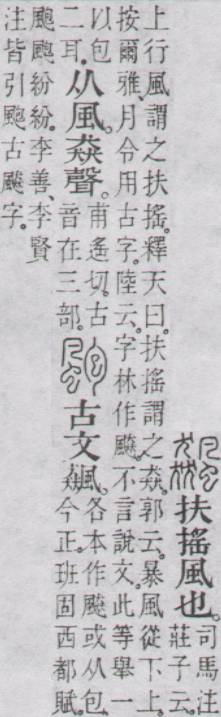 扶搖風也。
司馬注
莊子云。
上行風謂之扶搖。釋天曰。扶搖謂之猋。郭云。暴風從下上。
按爾雅、月令用古字。陸云。字林作飇。不言說文。此等舉一
以包
二耳。
从風。猋聲。
甫遙切。古
音在三部。
古文飆。
各本作飇或从包。
今正。班固西都賦。
颮颮紛紛。李善、李賢
注皆引颮古飇字。